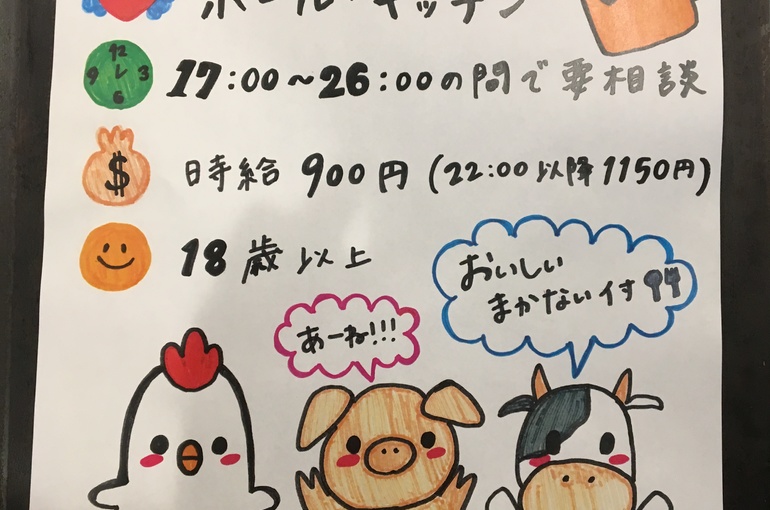 ホール・キッチン
12
9 3
6
17:00〜26:00の間で要相談
$
時給 900円 (22:00以降1150円)
18歳以上
おいしい
まかない付
あーね!!!